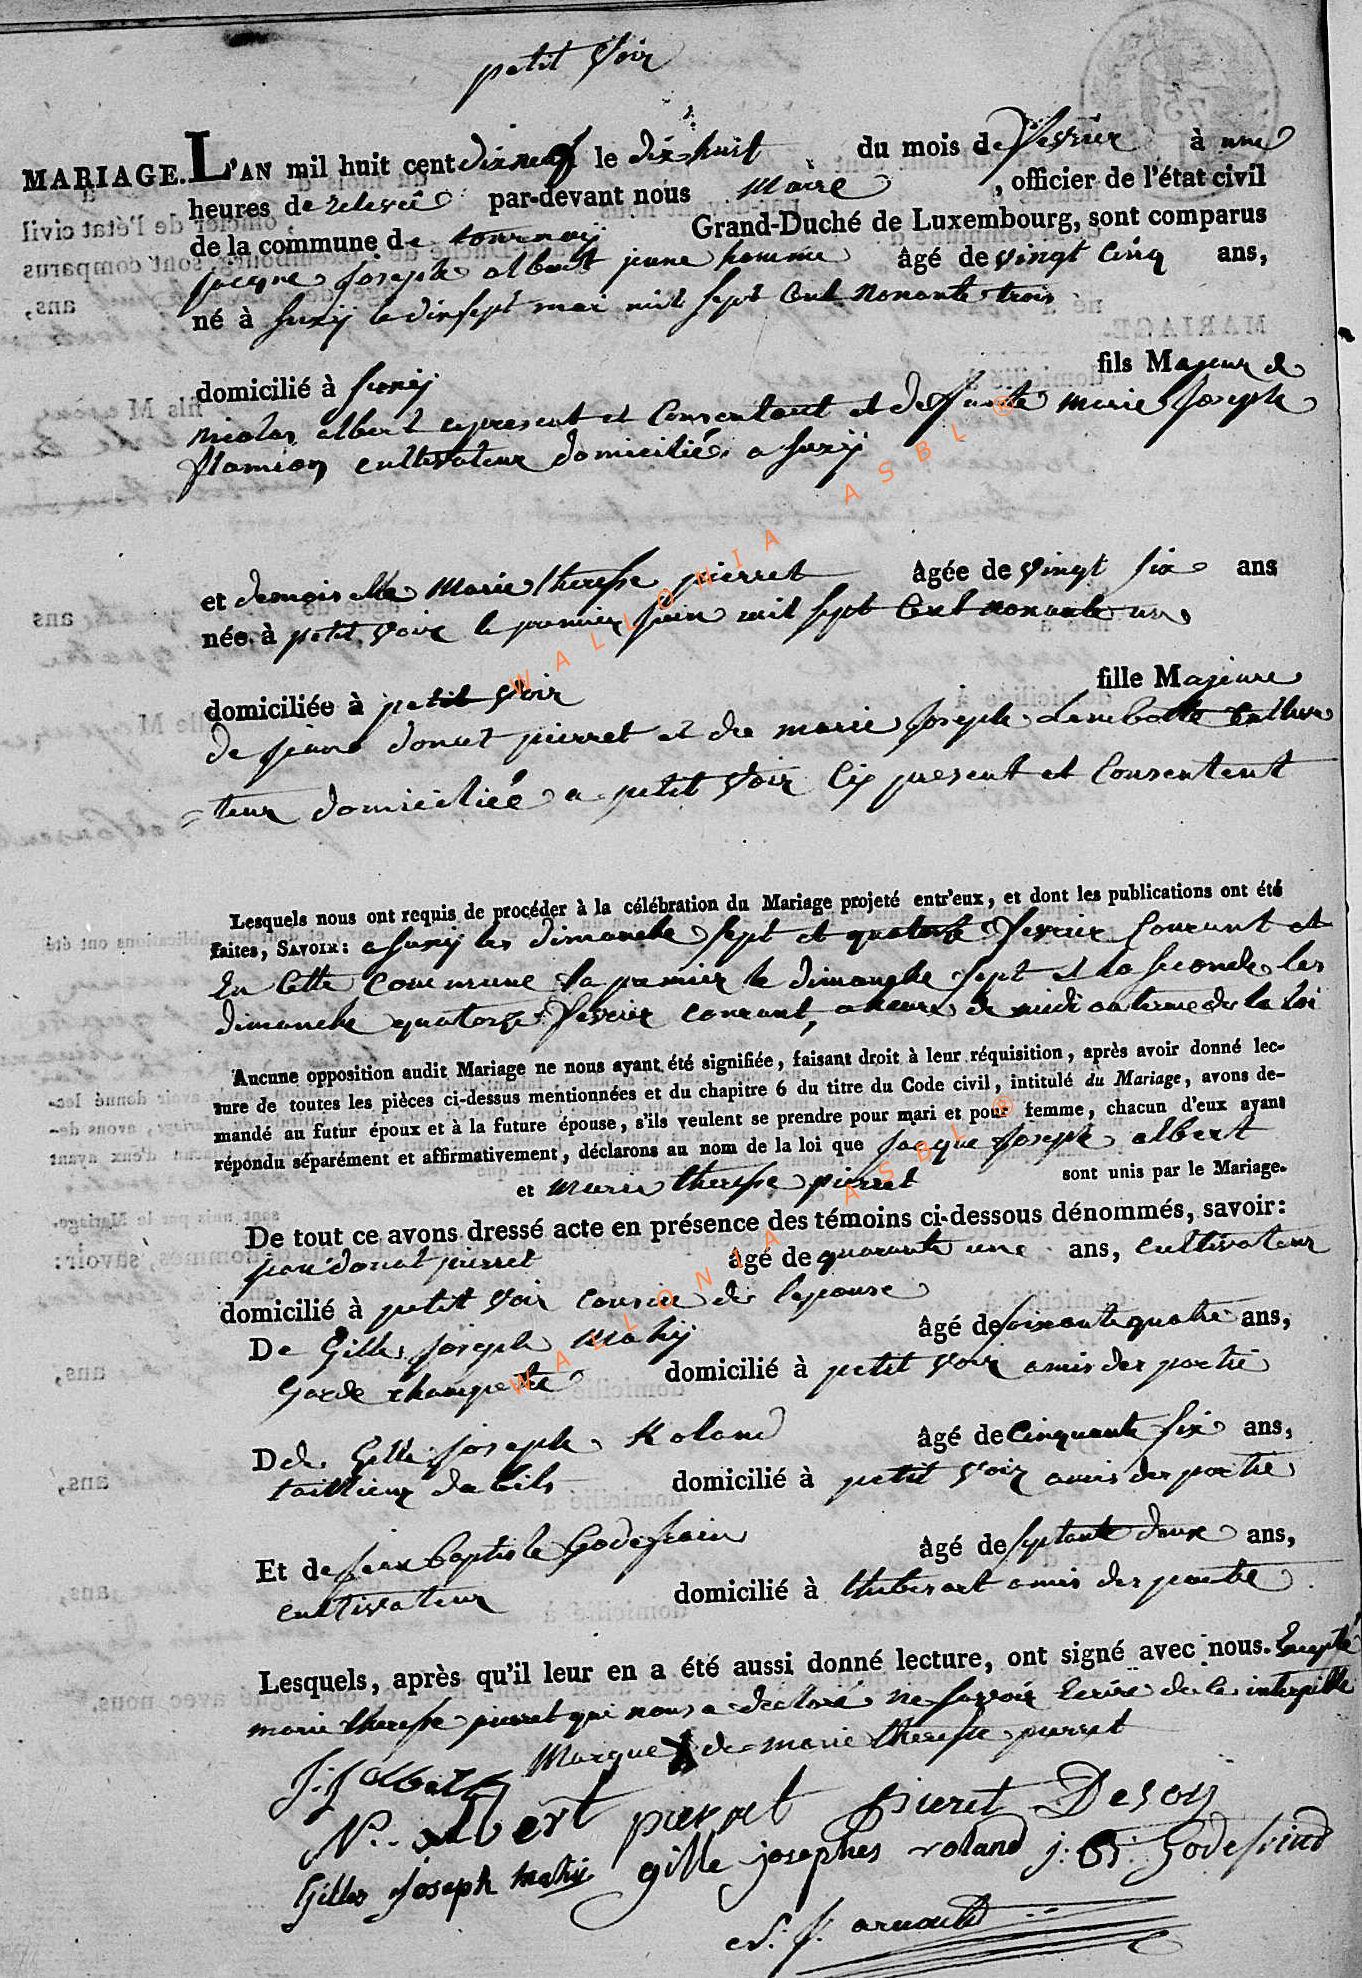 petit Voir
MARIAGE. L'AN mil huit cent dixneuf le dix-huit du mois de fevrier à une
heures de relevée par-devant nous Maire , officier de l'état civil
de la commune de tournay Grand-Duché de Luxembourg, sont comparus
jacque joseph albert jeune homme âgé de vingt Cinq ans,
né à Suxy le dixsept mai mil sept Cent Nonante trois
fils Majeur de
domicilié à Suxy
nicolas albert cy present et Consentant et de defunte marie joseph
flamion cultivateur domicilié a Suxy
et demoiselle Marie therese pierret âgée de vingt six ans
née à petit Voir le premier juin mil sept Cent nonante un
fille Majeure
domiciliée à petit Voir
de jean donat pierret et de marie joseph Lambotte Cultiva
= teur domiciliée a petit Voir Cy present et Consentent
Lesquels nous ont requis de procéder à la célébration du Mariage projeté entr'eux, et dont les publications ont été
faites, SAVOIR: a Suxy les dimanche sept et quatorze fevrier Courant et
En Cette Commune la premier le dimanche sept et la seconde les
dimanche quatorze fevrier courant, a heure de midi au terme de la loi
Aucune opposition audit Mariage ne nous ayant été signifiée, faisant droit à leur réquisition, après avoir donné lec-
ture de toutes les pièces ci-dessus mentionnées et du chapitre 6 du titre du Code civil, intitulé du Mariage, avons de-
mandé au futur époux et à la future épouse, s'ils veulent se prendre pour mari et pour femme, chacun d'eux ayant
répondu séparément et affirmativement, déclarons au nom de la loi que Jacque Joseph albert
et marie therese pierret sont unis par le Mariage.
De tout ce avons dressé acte en présence des témoins ci-dessous dénommés, savoir:
jean donat pierret âgé de quarante une ans, cultivateur
domicilié à petit Voir cousin de lepouse
De Gille joseph Mahy âgé de soixante quatre ans,
Garde champetre domicilié à petit Voir amis des partie
De de Gille joseph Roland âgé de Cinquante six ans,
taillieur dabits domicilié à petit Voir amis des partie
Et de jean baptiste Godefrain âgé de septante deux ans,
cultivateur domicilié à thiberart amis des partie
Lesquels, après qu'il leur en a été aussi donné lecture, ont signé avec nous. Excepté
marie therese pierret qui nous a declaré ne savoir Ecrire de le interpille
Marque X de marie therese pierret
J: J albert
N. albert pierret pieret Desoy
Gilles Joseph Mahy gille josephes roland j: B: Godefrind
J: arnould
WALLONIA ASBL ®
WALLONIA ASBL ®